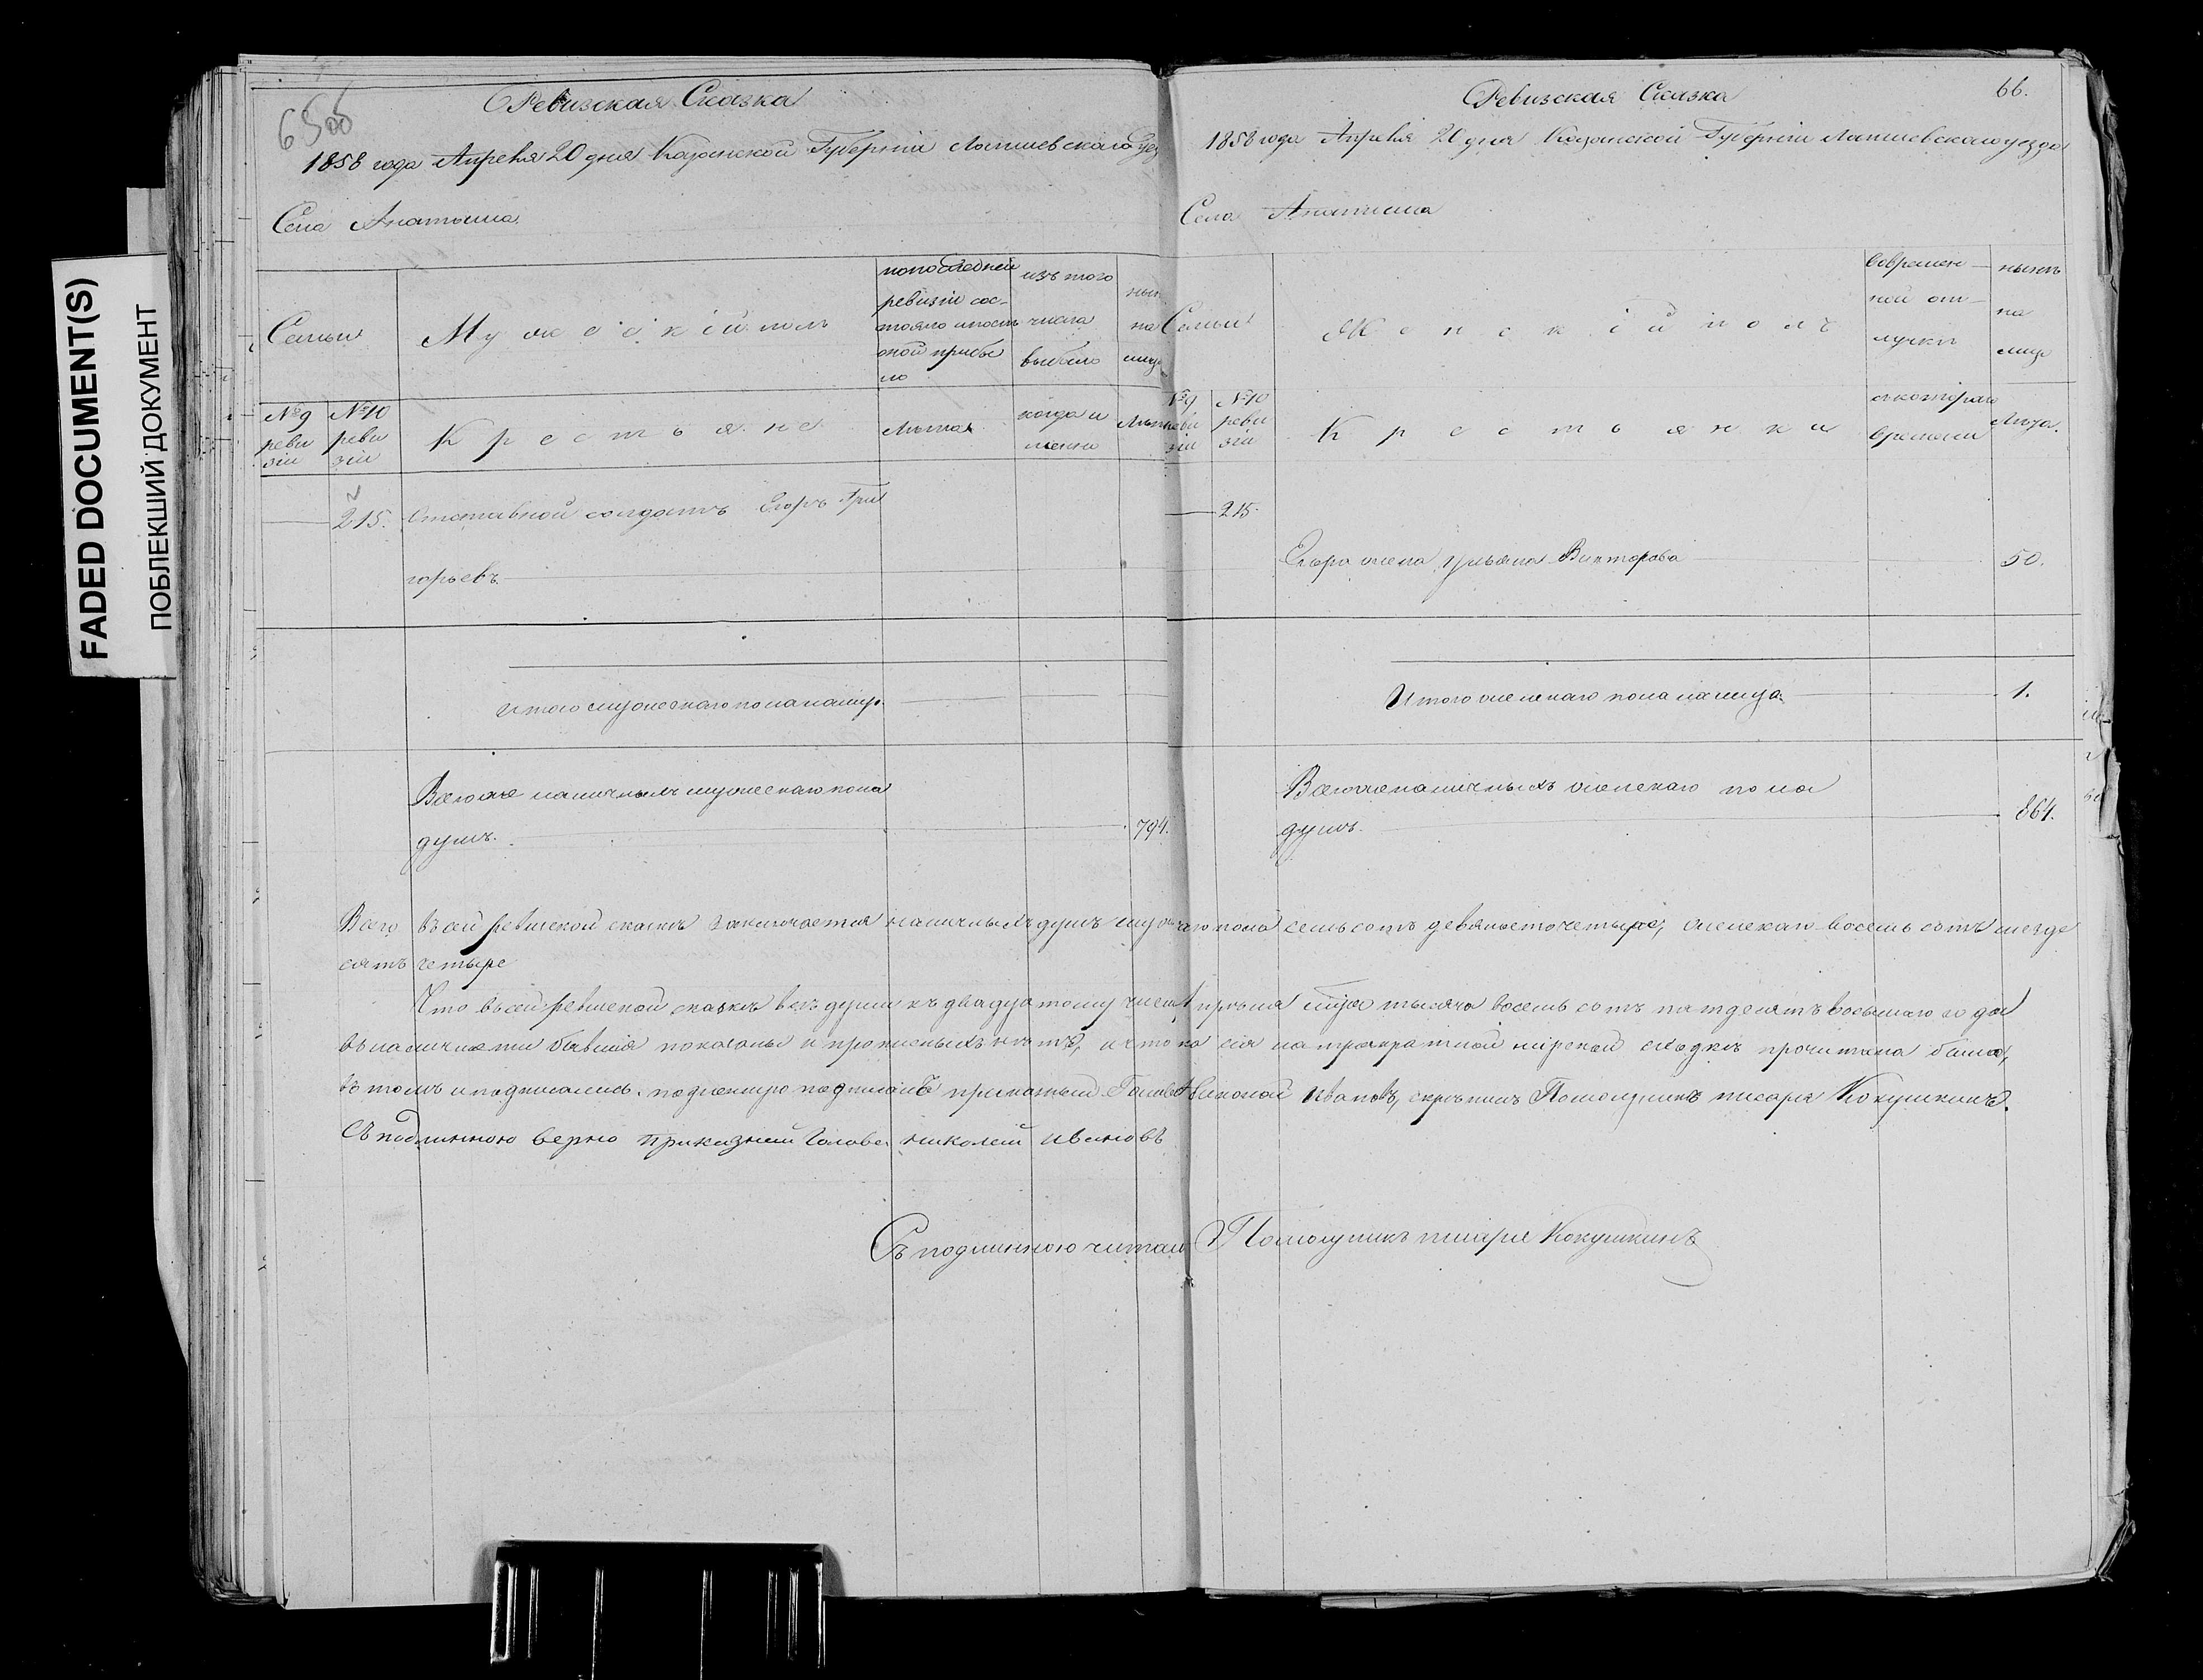 FADED DOCUMENT(S)
ПОБЛЕКШИЙ ДОКУМЕНТ
Ревизская Сказка
1858 года Апреля 20 дня Казанской Губерніи Лаишевскаго уез
Села Анатыша
Семьи
Мужескій полъ
по последней
ревизіи сос-
тояло и после
оной прибы
ло
изъ того
числа
выбыло
ныне
на
лицо
№9
реви
зіи
№10
реви
зіи
Крестьяне
Лета
когда и
именно
Лета
215. Отставной солдатъ Егоръ Гри
горьевъ.
Итого мужескаго пола на лицо.
Всего же наличныхъ мужескаго пола
душъ. 794.
Ревизская Сказка
66.
1858 года Апреля 20 дня Казанской Губерніи Лаишевскаго уезда
Села Анатыша
Семьи
Женскій полъ
во времен-
ной от-
лучки
ныне
на
лицо
№9
реви
зіи
№10
реви
зіи
Крестьянки
съ котораго
времени
Лета.
215.
Егора жена Ульяна Викторова 50.
Итого женскаго пола на лицо. 1.
Всего же наличныхъ женскаго пола
душъ. 864.
Всего въ сей ревиской сказке заключается наличныхъ душъ мужескаго пола семь сотъ девяносто четыре, женскаго восемь сотъ шезде
сятъ четыре
Что въ сей ревиской сказке все души къ двадцатому числу Апреля месяца тысяча восемь сотъ пятдесятъ восьмаго года
въ наличности бывшія показаны и прописныхъ нетъ, и что она сія на троекратной мірской сходке прочитана была,
въ томъ и подписались. подлинную подписалъ приказный Голова Николай Ивановъ, скрепилъ Помощникъ писаря Кокушкинъ.
Съ подлинною верно приказный Голова николай ивановъ
Съ подлинною читалъ Помощникъ писаря Кокушкинъ